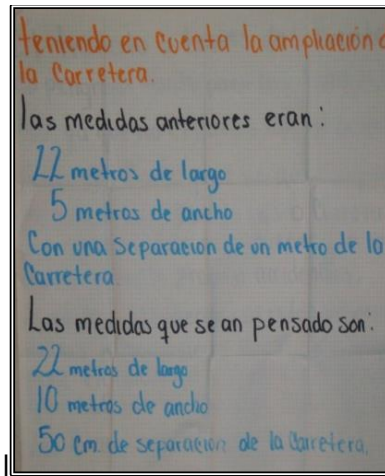 teniendo en cuenta la ampliación d
la Carretera.
las medidas anteriores eran:
22 metros de largo
5 metros de ancho
Con una separacion de un metro de la
Carretera
Las medidas que se an pensado son:
22 metros de largo
10 metros de ancho
50 cm de separacion de la Carretera,